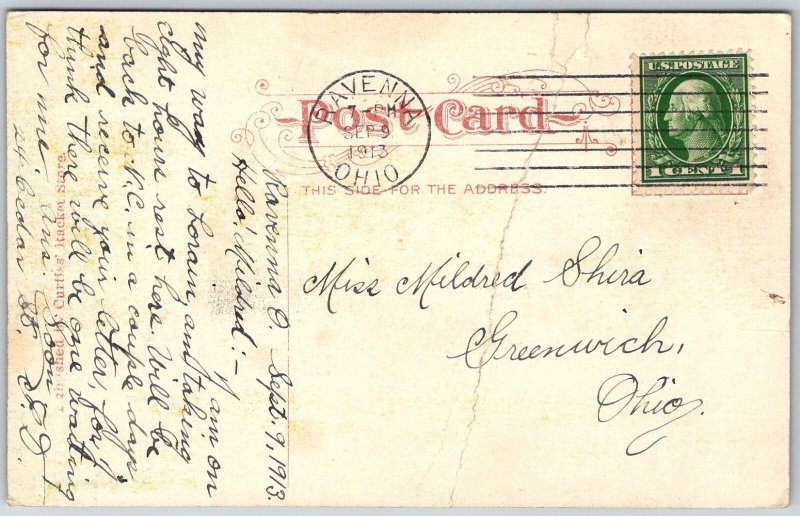 Post Card
THIS SIDE FOR THE ADDRESS.
RAVENNA
7-PM
SEP 9
1913
OHIO
U.S. POSTAGE
1 CENT 1
Miss Mildred Shira
Greenwich,
Ohio.
Ravenna O. Sept. 9, 1913.
Hello! Mildred:-
I am on
my way to Lorain am taking
eight hours rest here. Will be
back to N.C. in a couple days
and receive your letter, for I
think there will be one waiting
for me. Ans. Soon
24 Cedar St.
Published by Curtiss' Racket Store.